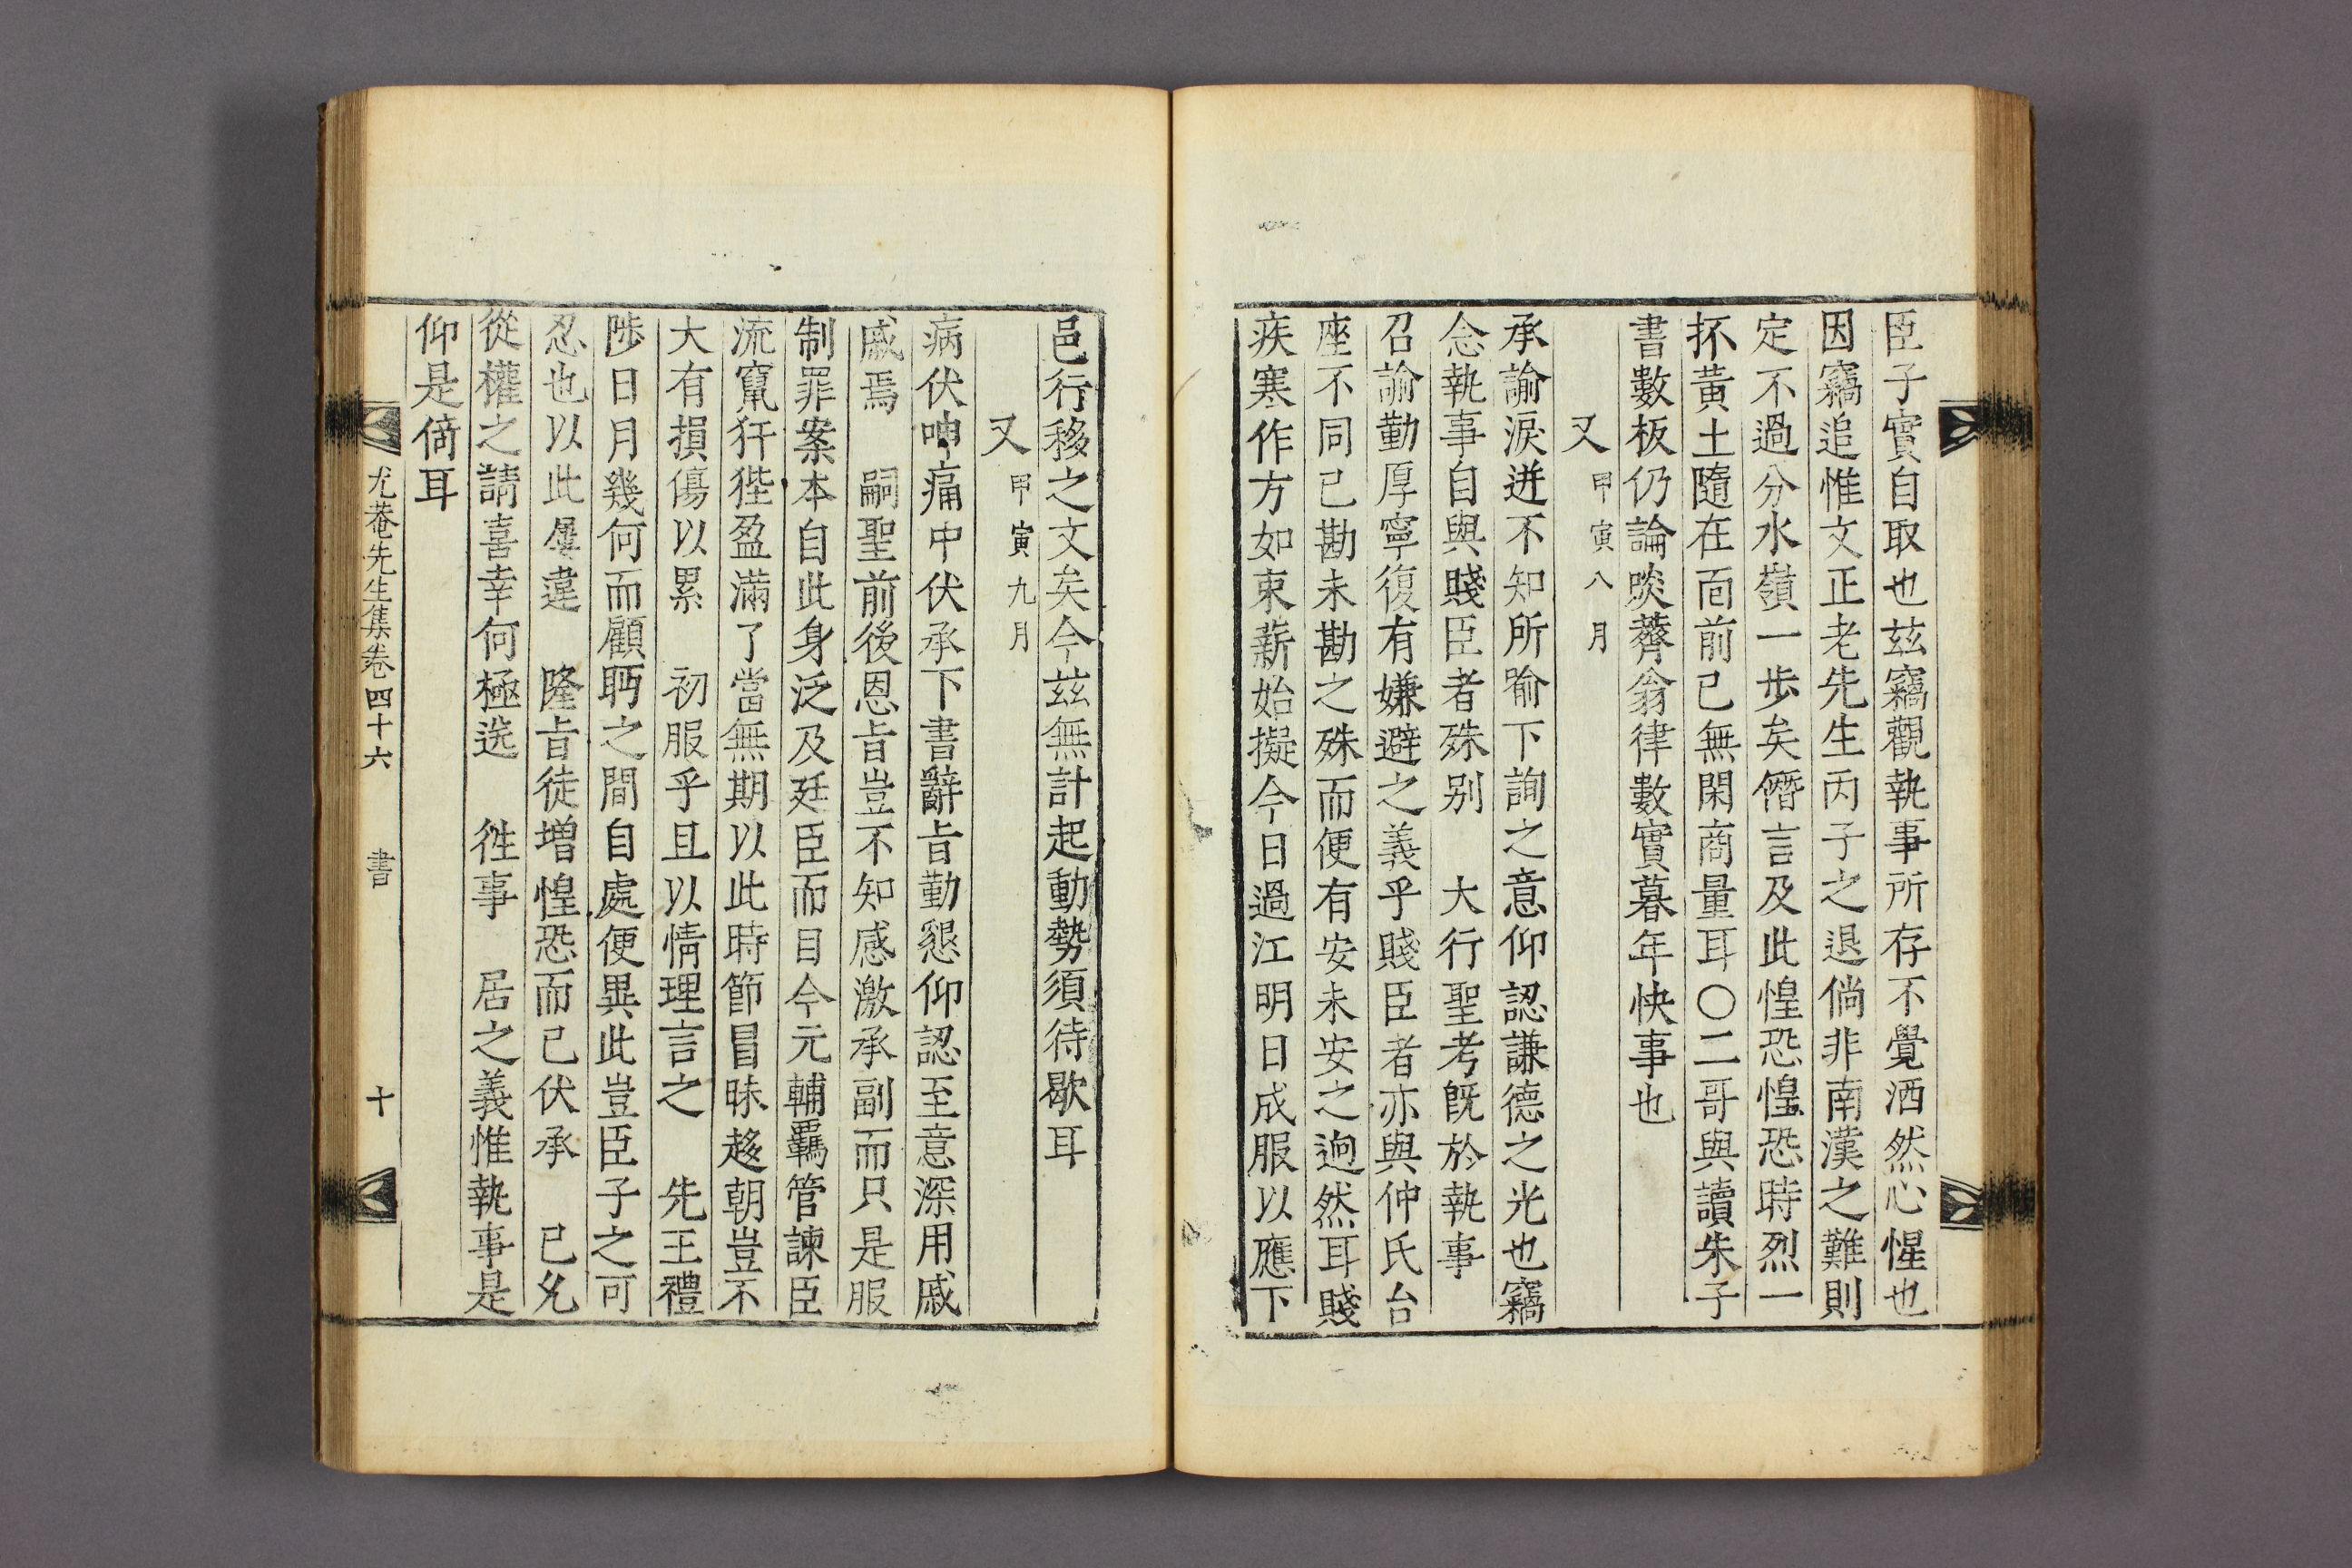 臣子實自取也玆竊觀執事所存不覺洒然心惺也
因竊追惟文正老先生丙子之退倘非南漢之難則
定不過分水嶺一步矣僭言及此惶恐惶恐時烈一
抔黃土隨在面前已無閑商量耳〇二哥與讀朱子
書數板仍論啖薺翁律數實暮年快事也
又 甲寅八月
承諭淚迸不知所喩下詢之意仰認謙德之光也竊
念執事自與賤臣者殊别 大行聖考旣於執事
召諭勤厚寧復有嫌避之義乎賤臣者亦與仲氏台
座不同已勘未勘之殊而便有安未安之逈然耳賤
疾寒作方如束薪始擬今日過江明日成服以應下
邑行移之文矣今玆無計起動勢須待歇耳
又 甲寅九月
病伏呻痛中伏承下書辭旨勤懇仰認至意深用戚
戚焉 嗣聖前後恩旨豈不知感激承副而只是服
制罪案本自此身泛及廷臣而目今元輔覊管諫臣
流竄犴狴盈滿了當無期以此時節冒昧趍朝豈不
大有損傷以累 初服乎且以情理言之 先王禮
陟日月幾何而顧眄之間自處便異此豈臣子之可
忍也以此屢違 隆旨徒增惶恐而已伏承 已允
從權之請喜幸何極送 徃事 居之義惟執事是
仰是倚耳
尤菴先生集卷四十六 書 十